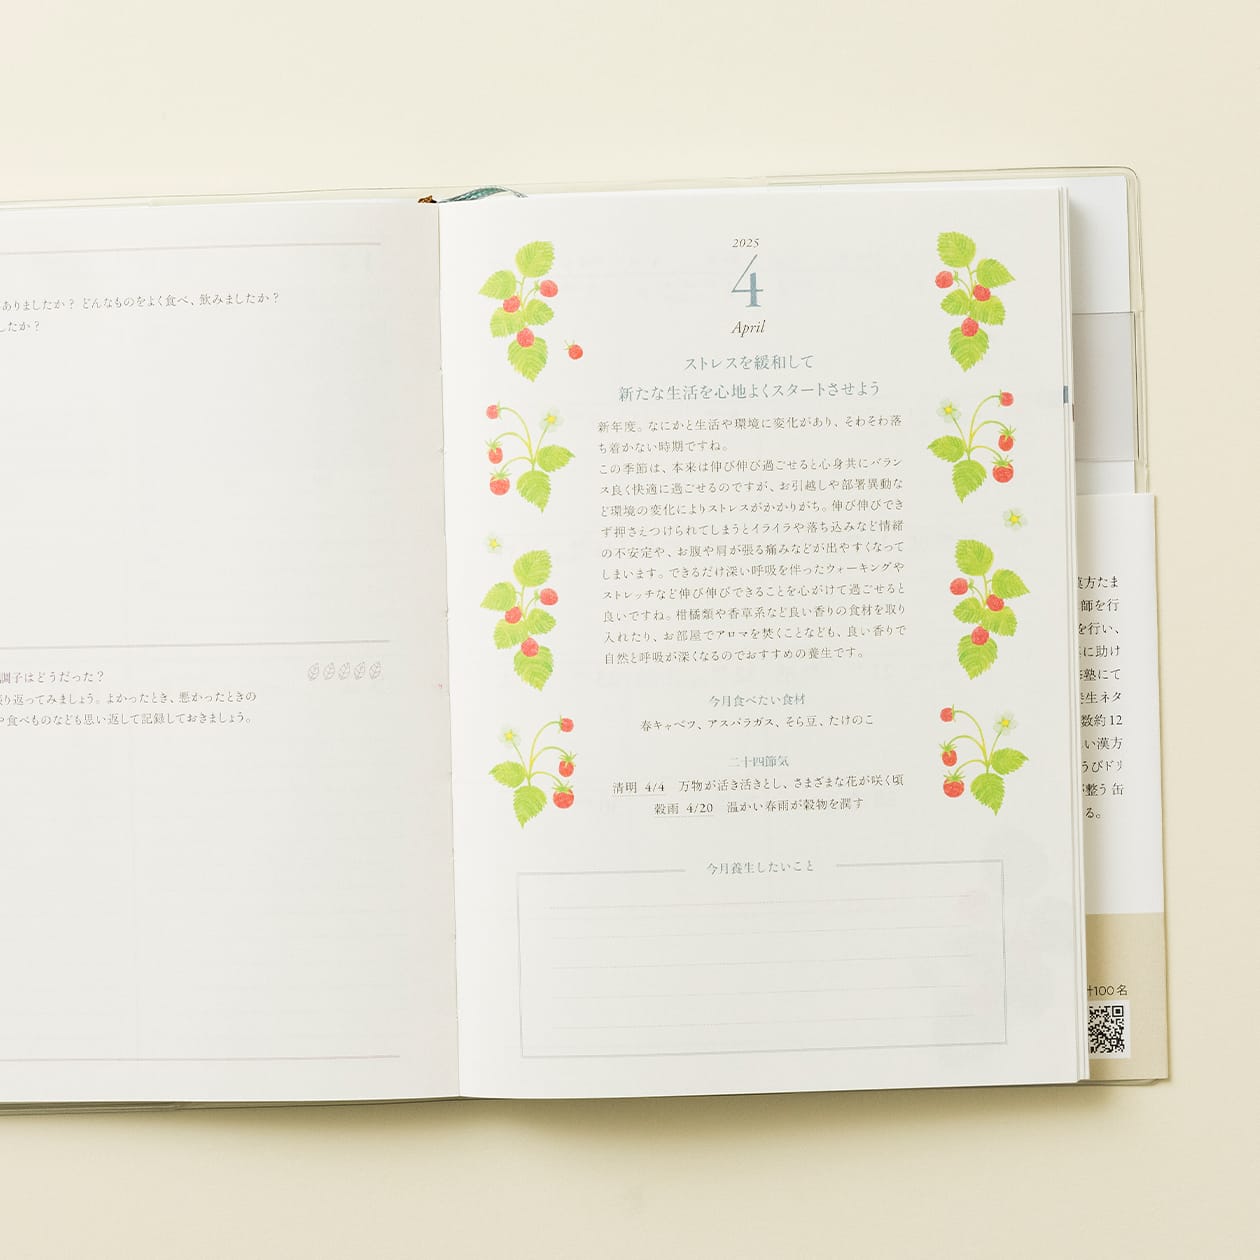 ありましたか？ どんなものをよく食べ、飲みましたか？
したか？
調子はどうだった？
り返ってみましょう。よかったとき、悪かったときの
や食べものなども思い返して記録しておきましょう。
2025
4
April
ストレスを緩和して
新たな生活を心地よくスタートさせよう
新年度。なにかと生活や環境に変化があり、そわそわ落
ち着かない時期ですね。
この季節は、本来は伸び伸び過ごせると心身共にバラン
ス良く快適に過ごせるのですが、お引越しや部署異動な
ど環境の変化によりストレスがかかりがち。伸び伸びでき
ず押さえつけられてしまうとイライラや落ち込みなど情緒
の不安定や、お腹や肩が張る痛みなどが出やすくなって
しまいます。できるだけ深い呼吸を伴ったウォーキングや
ストレッチなど伸び伸びできることを心がけて過ごせると
良いですね。柑橘類や香草系など良い香りの食材を取り
入れたり、お部屋でアロマを焚くことなども、良い香りで
自然と呼吸が深くなるのでおすすめの養生です。
今月食べたい食材
春キャベツ、アスパラガス、そら豆、たけのこ
二十四節気
清明 4/4 万物が活き活きとし、さまざまな花が咲く頃
穀雨 4/20 温かい春雨が穀物を潤す
今月養生したいこと
漢方たま
師を行
を行い、
に助け
塾にて
生ネタ
数約12
い漢方
うびドリ
整う 缶
る。
計100名